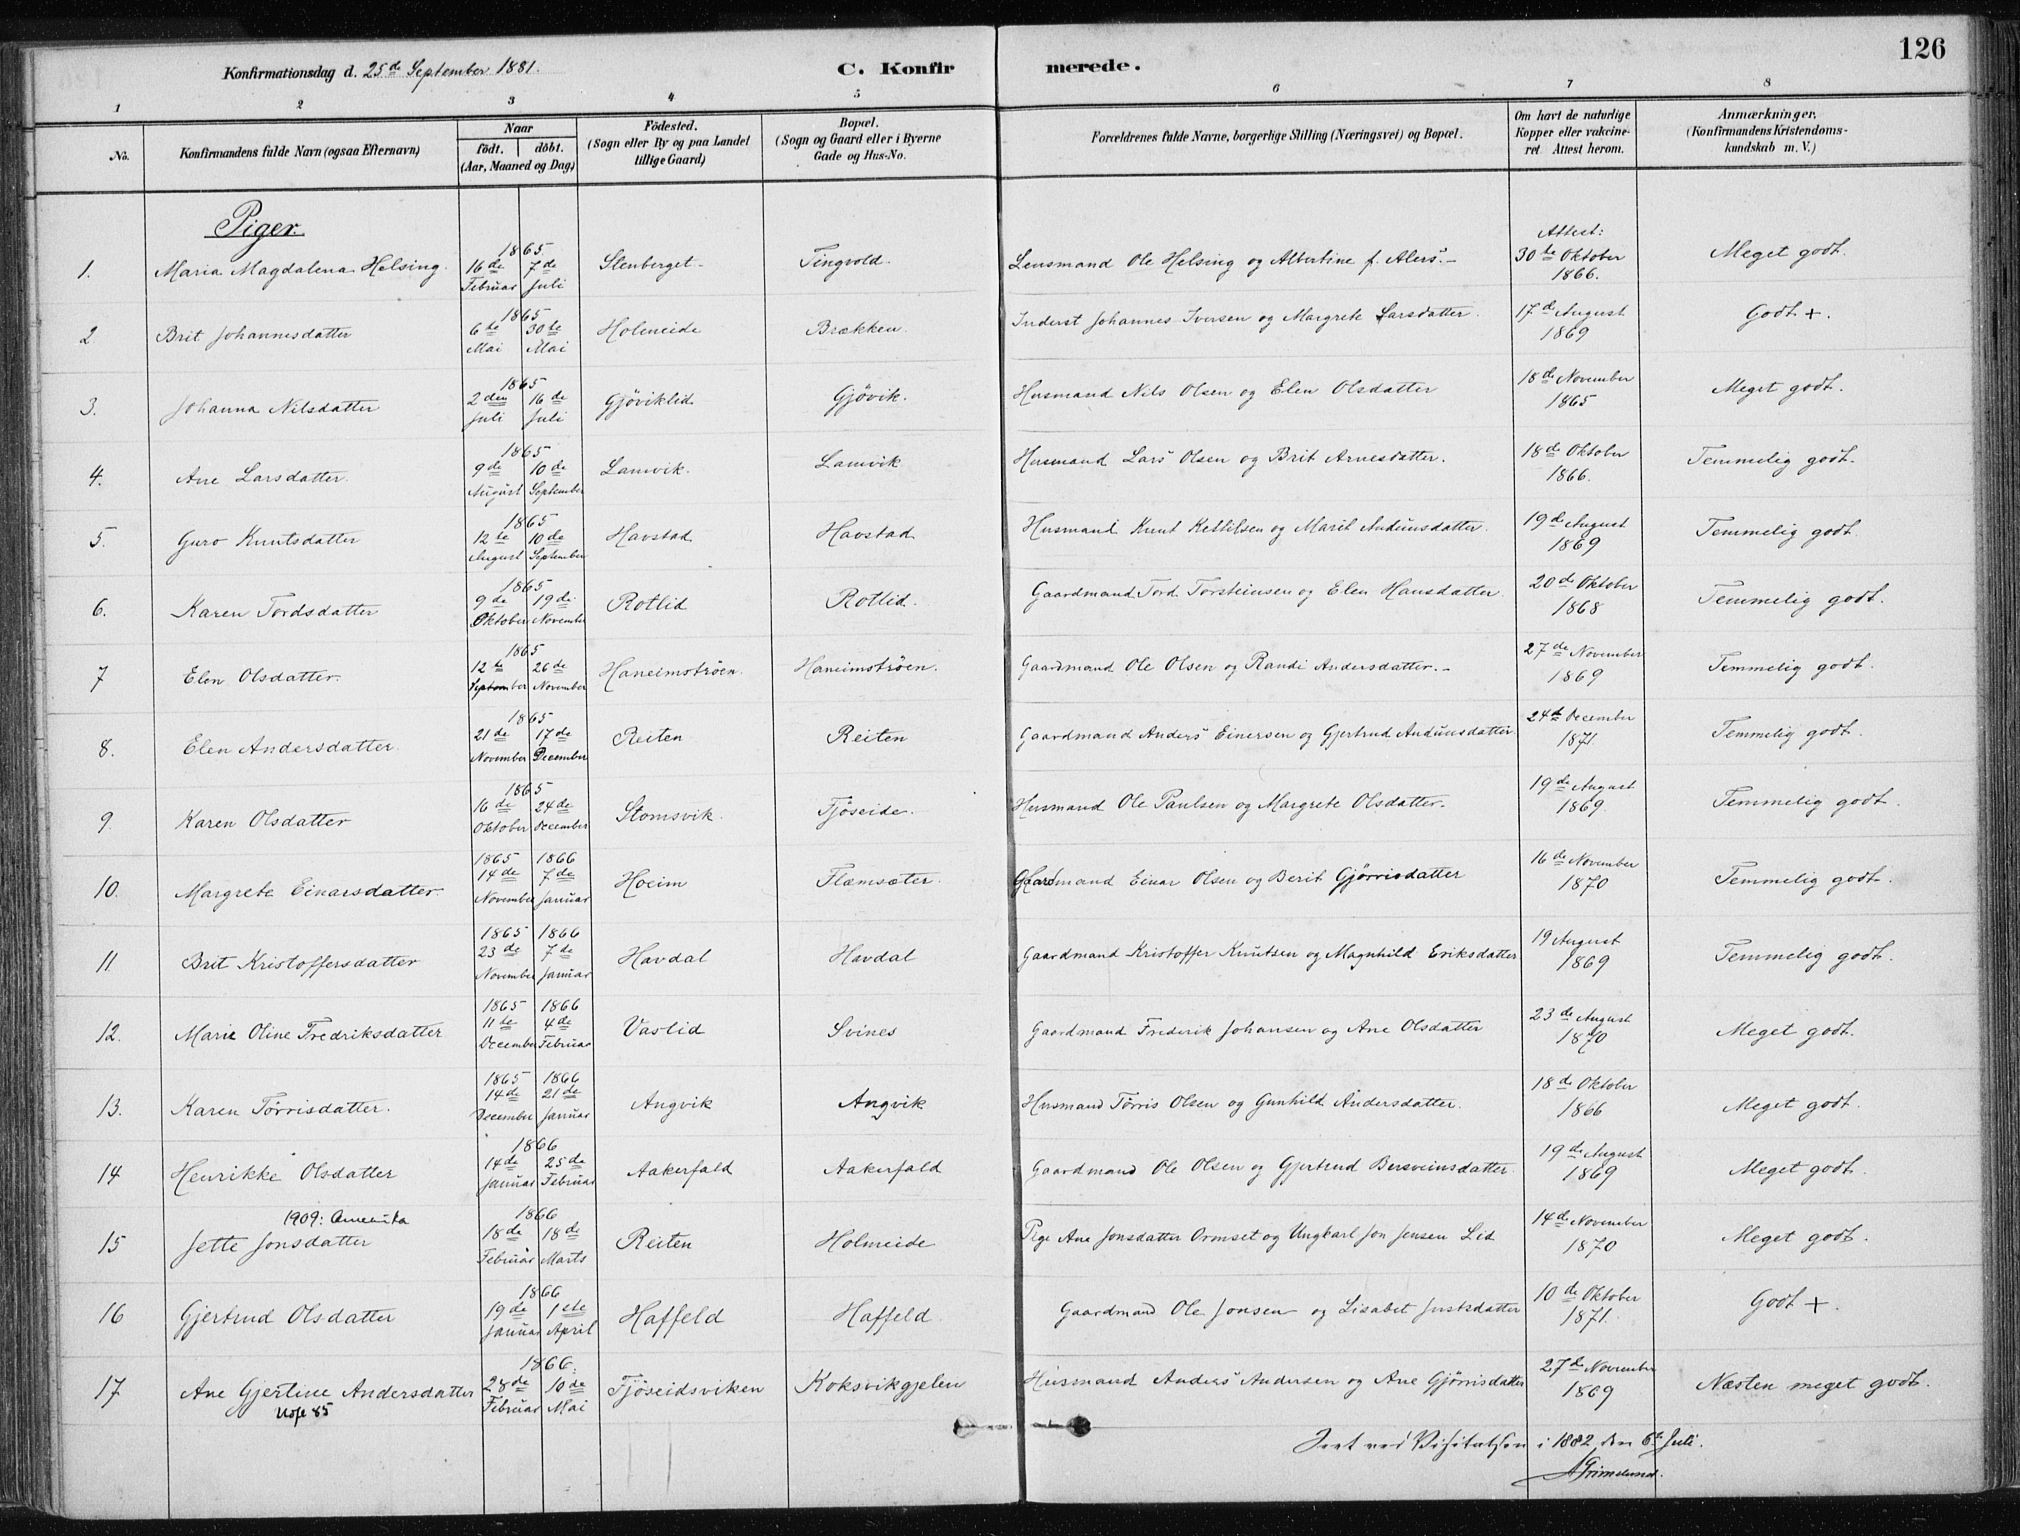 126
Konfirmationsdag d. 25de September 1881. C. Konfirmerede.
1 2 3 4 5 6 7 8
No. Konfirmandens fulde Navn (ogsaa Efternavn) Naar født. døbt. (Aar, Maaned og Dag.) Födested. (Sogn eller By og paa Landet tillige Gaard) Bopæl. (Sogn og Gaard eller i Byerne Gade og Hus-No. Forældrenes fulde Navne, borgerlige Stilling (Næringsvei) og Bopæl. Om havt de naturlige Kopper eller vakcineret Attest herom. Anmærkninger. (Konfirmandens Kristendomskundskab m. V.)
Piger.
1. Maria Magdalena Helsing. 1865 16de Februar 7de Juli Stenberget. Tingvold. Lensmand Ole Helsing og Albertine f. Alers. Attest: 30te Oktober 1866. Meget godt.
2 Brit Johannesdatter 1865 6te Mai 30te Mai Holmeide Brækken. Inderst Johannes Iversen og Margrete Larsdatter. 17de August 1869 Godt +.
3. Johanna Nilsdatter 1865 2den Juli 16de Juli Gjöviklid Gjövik. Husmand Nils Olsen og Elen Olsdatter 18de November 1865 Meget godt.
4. Ane Larsdatter. 1865 9de August 10de September Lamvik. Lamvik Husmand Lars Olsen og Brit Arnesdatter. 18de Oktober 1866. Temmelig godt.
5. Guro Knutsdatter 1865 12te August 10de September Havstad Havstad Husmand Knut Kettilsen og Marit Audunsdatter. 19de August 1869 Temmelig godt
6. Karen Tordsdatter 1865 9de Oktober 19de November Rotlid Rotlid. Gaardmand Tord Torsteinsen og Elen Hansdatter 20de Oktober 1868 Temmelig godt.
7 Elen Olsdatter. 1865 12te September 26de November Haneimströen Haneimströen. Gaardmand Ole Olsen og Randi Andersdatter. 27de November 1869 Temmelig godt.
8. Elen Andersdatter 1865 21de November 17de December Reiten Reiten Gaardmand Anders Einersen og Gjertrud Audunsdatter 24de December 1871 Temmelig godt.
9. Karen Olsdatter 1865 16de Oktober 24de December Stomsvik. Tjöseide. Husmand Ole Paulsen og Margrete Olsdatter. 19de August 1869. Temmelig godt.
10. Margrete Einarsdatter. 1865 14de November 1866 7de Januar Hoeim Flemsæter. Gaardmand Einar Olsen og Berit Gjörrisdatter 16de November 1870 Temmelig godt.
11 Brit Kristoffersdatter 1865 23de November 1866 7de Januar Havdal Havdal Gaardmand Kristoffer Knutsen og Magnhild Eriksdatter 19 August 1869 Temmelig godt.
12. Marie Oline Fredriksdatter 1865 11te December 1866 4de Februar Vaslid Svines Gaardmand Frederik Johansen og Ane Olsdatter 23de August 1870 Meget godt.
13. Karen Törrisdatter. 1865 14de December 1866 21de Januar Angvik Angvik Husmand Törris Olsen og Gunhild Andersdatter. 18de Oktober 1866 Meget godt.
14 Henrikke Olsdatter 1866 14de Januar 25de Februar Aakerfald Aakerfald Gaardmand Ole Olsen og Gjertrud Bersveinsdatter. 19de August 1869 Meget godt.
1909: Amerika
15 Jette Jonsdatter 1866 18de Februar 18de Marts Reiten Holmeide Pige Ane Jonsdatter Ormset og Ungkarl Jon Jensen Lid 14de November 1870 Meget godt.
16 Gjertrud Olsdatter 1866 19de Januar 1ste April Haffeld Haffeld. Gaardmand Ole Jonsen og Lisabet Justsdatter 10de Oktober 1871. Godt +.
17 Ane Gjertine Andersdatter 1866. 28de Februar 10de Mai Tjöseidsviken Koksvikgjelen Husmand Anders Andersen og Ane Gjörrisdatter 27de November 1869 Næsten meget godt.
85
Seet ved Visitatsen i 1882 den 6te Juli.
A Grimelund.